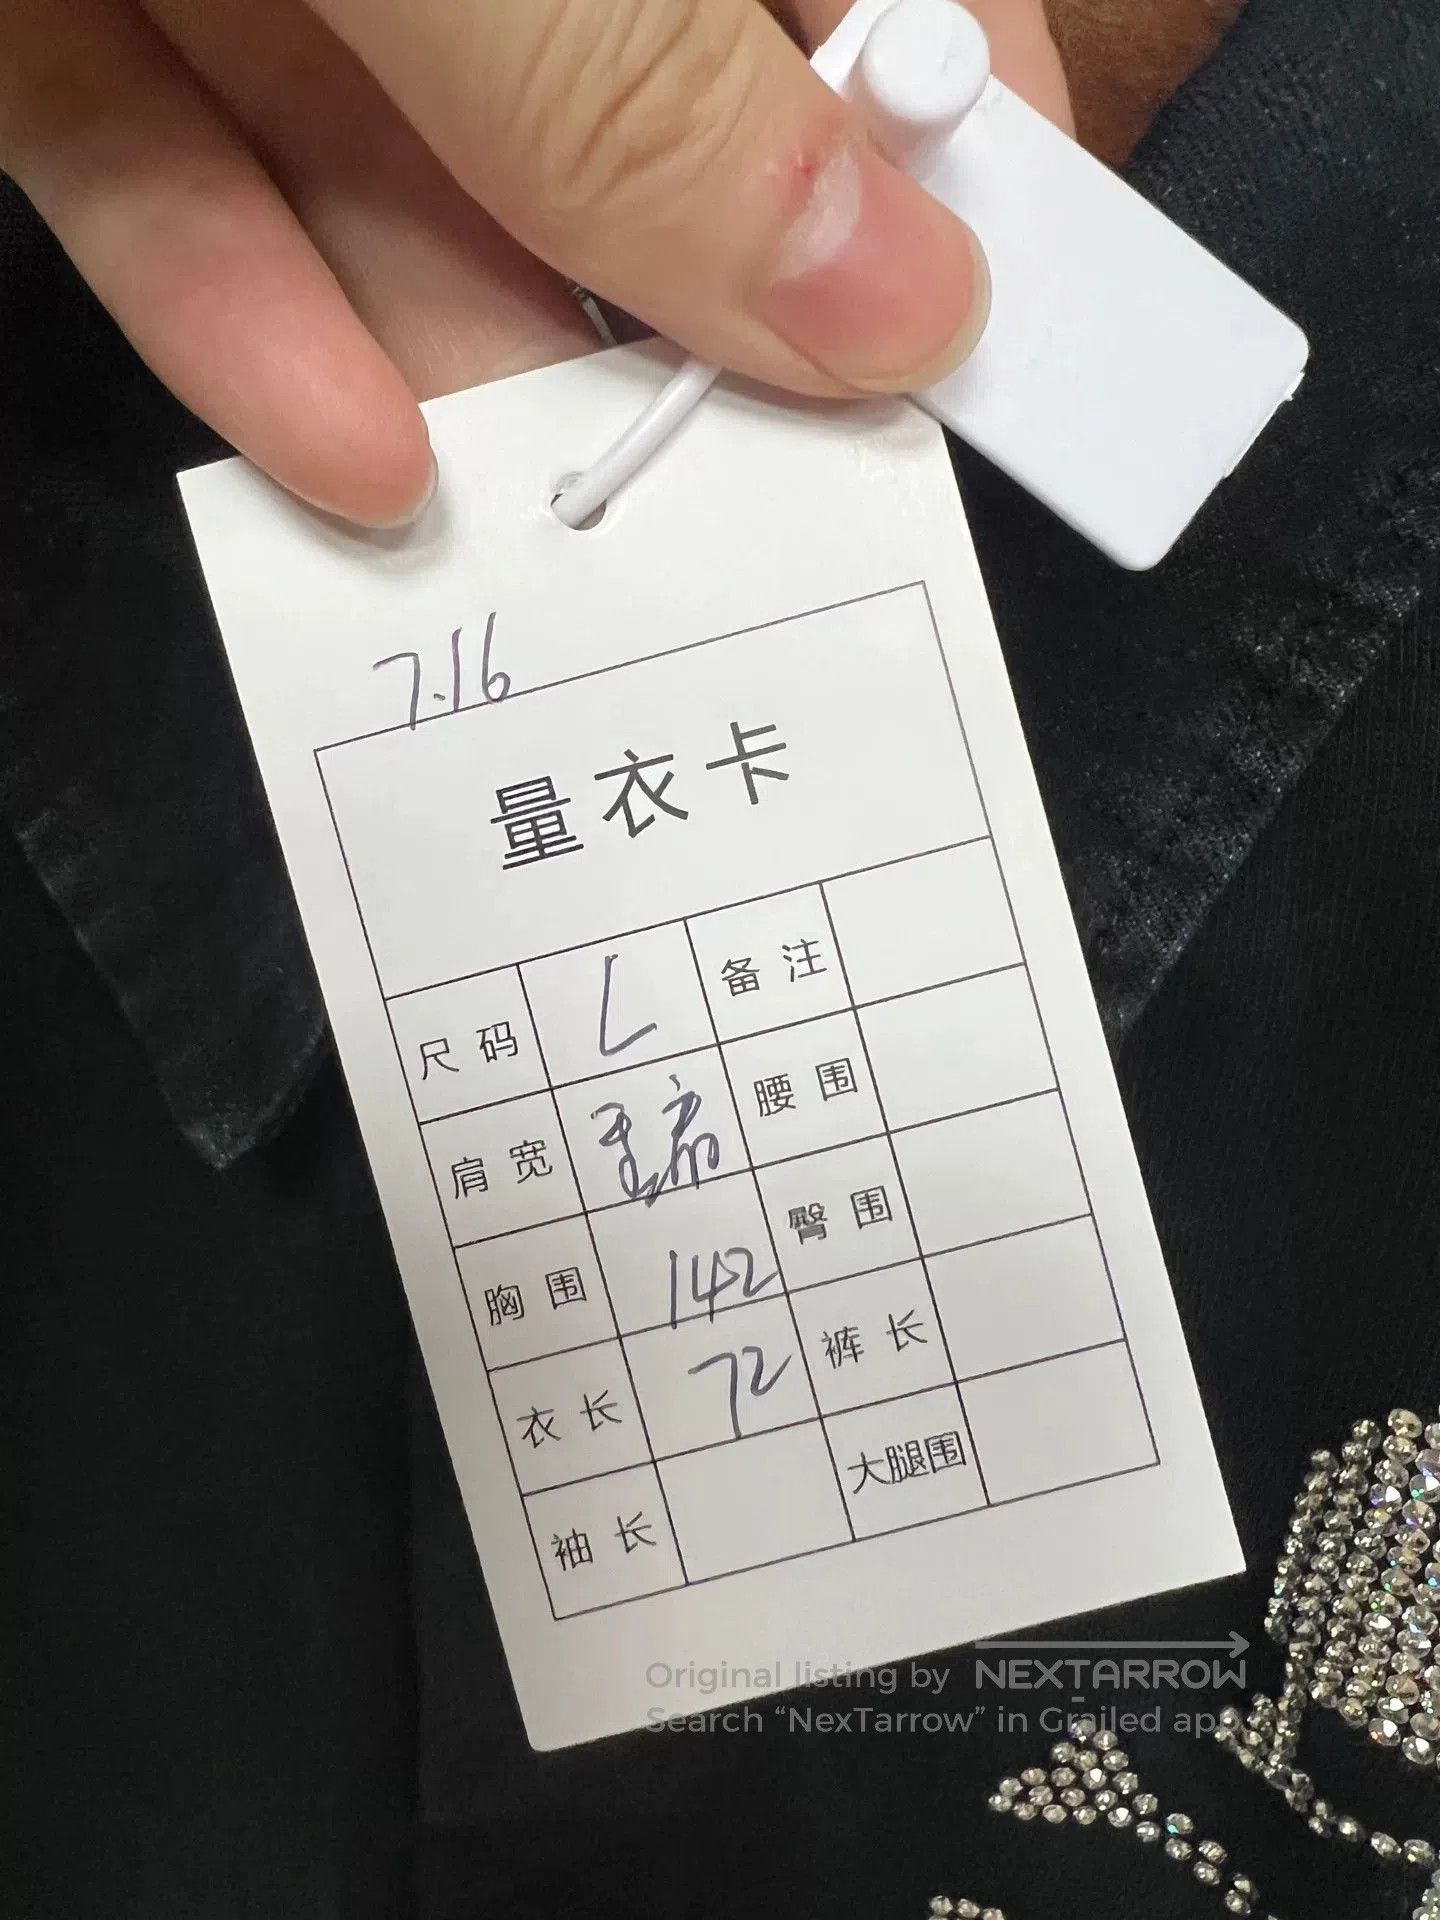 7.16
量衣卡
尺码 L 备注
肩宽 腰围
胸围 142 臀围
衣长 72 裤长
袖长 大腿围
Original listing by NEXTARROW
Search “NexTarrow” in Grailed app